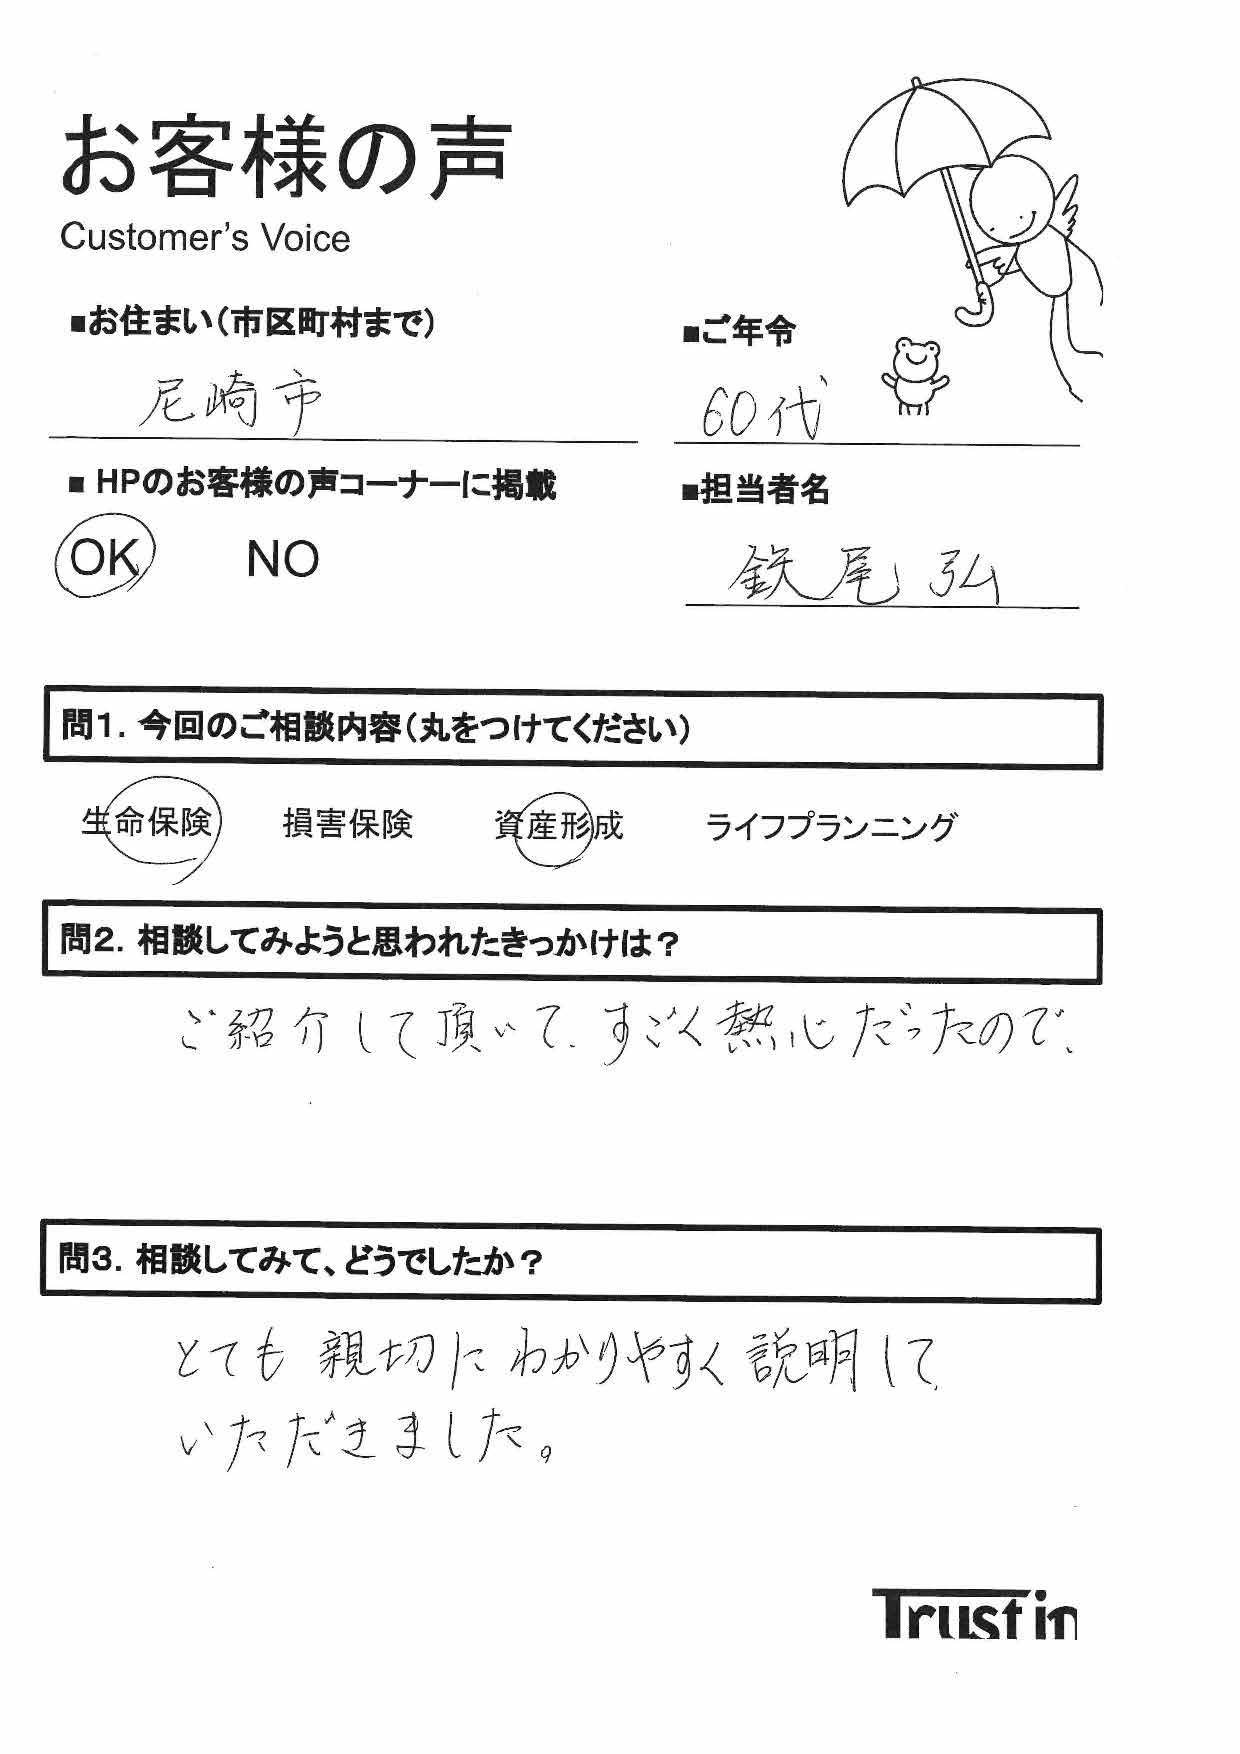 お客様の声
Customer's Voice
■お住まい（市区町村まで）
尼崎市
■ご年令
60代
■ HPのお客様の声コーナーに掲載
OK NO
■担当者名
鉄尾 弘
問1. 今回のご相談内容（丸をつけてください）
生命保険 損害保険 資産形成 ライフプランニング
問2. 相談してみようと思われたきっかけは？
ご紹介して頂いて、すごく熱心だったので、
問3. 相談してみて、どうでしたか？
とても親切にわかりやすく説明して
いただきました。
Trust in